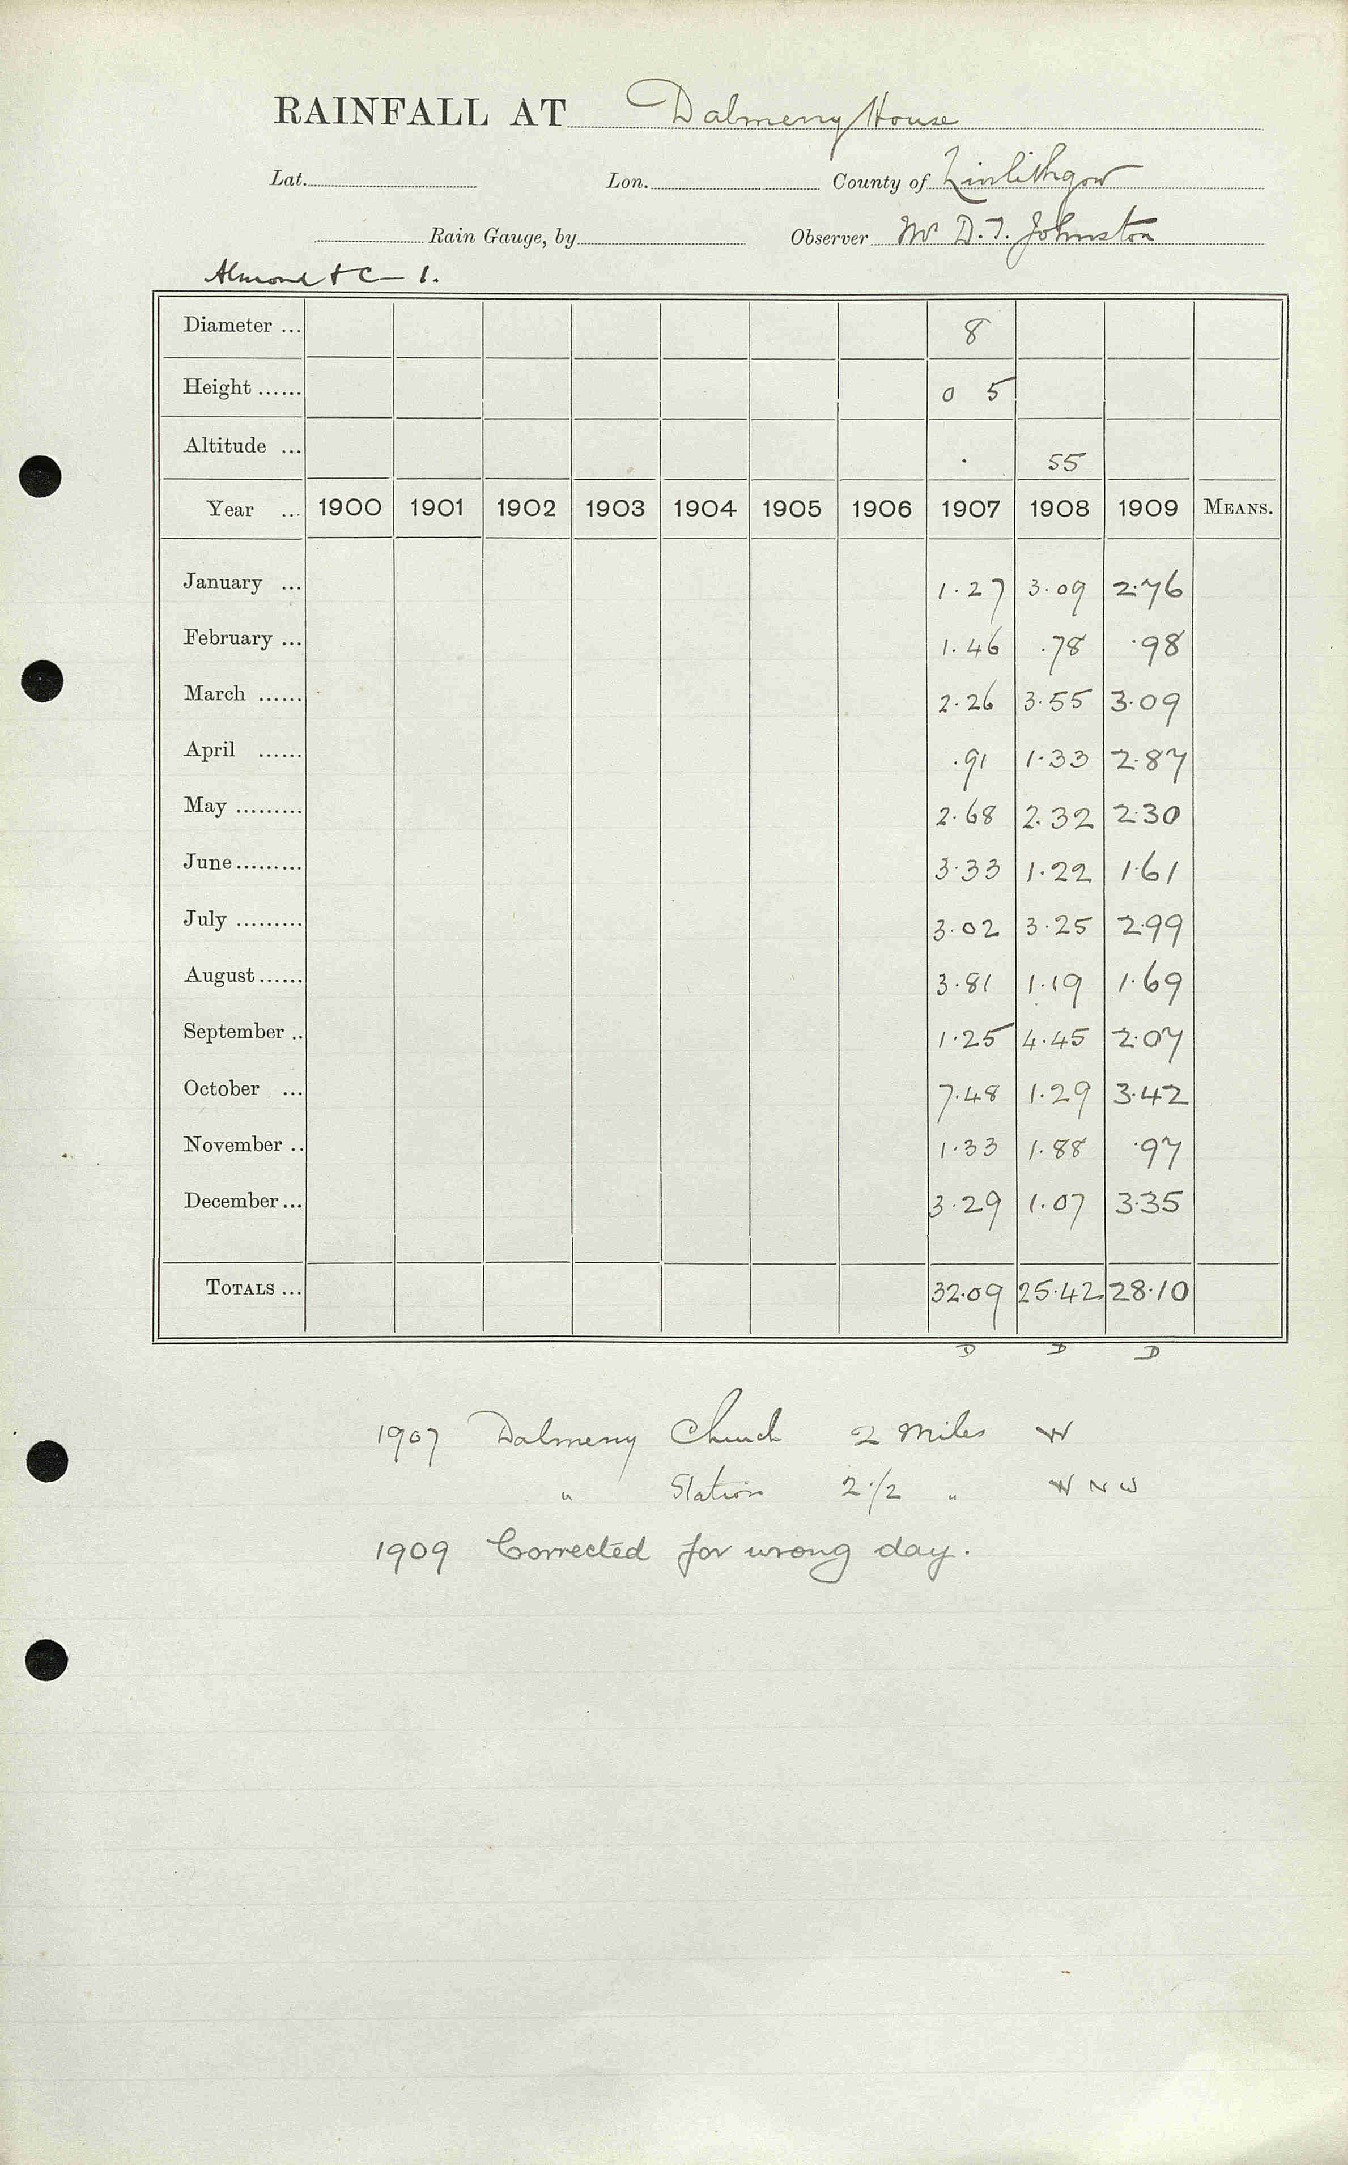 RAINFALL AT Dalmeny House
Lat. Lon. County of Linlithgow
Rain Gauge, by Observer Mr D. T. Johnston
Almond & C— 1.
Diameter ... 8
Height ...... 0 5
Altitude ... . 55
Year ... 1900 1901 1902 1903 1904 1905 1906 1907 1908 1909 MEANS.
January ... 1.27 3.09 2.76
February ... 1.46 .78 .98
March ...... 2.26 3.55 3.09
April ...... .91 1.33 2.87
May ......... 2.68 2.32 2.30
June......... 3.33 1.22 1.61
July ......... 3.02 3.25 2.99
August...... 3.81 1.19 1.69
September .. 1.25 4.45 2.07
October ... 7.48 1.29 3.42
November .. 1.33 1.88 .97
December... 3.29 1.07 3.35
TOTALS ... 32.09 25.42 28.10
D D D
1907 Dalmeny Church 2 miles W
" Station 2 1/2 " W N W
1909 Corrected for wrong day.